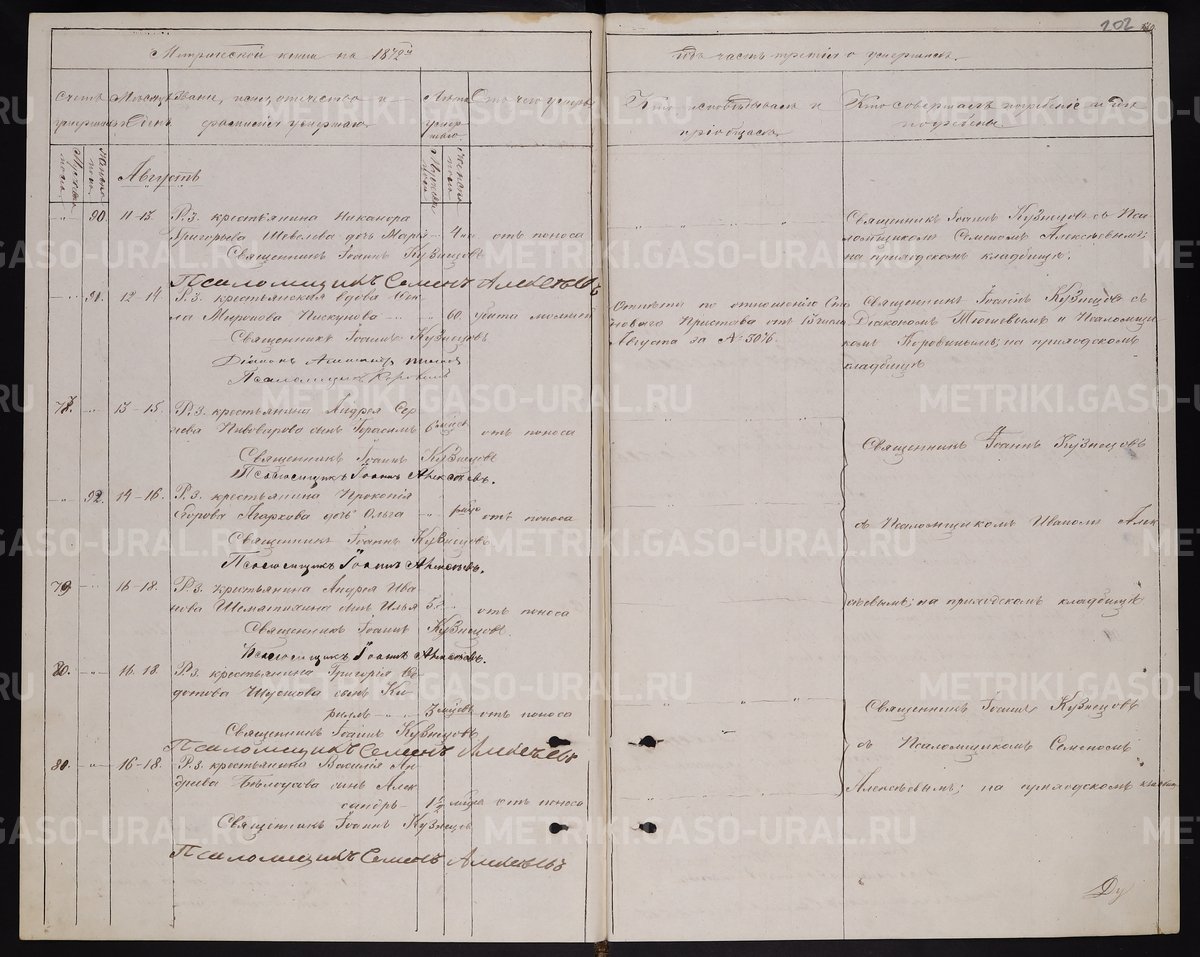 202
Метрической книги на 1872й
годъ часть третья о умершихъ.
Счетъ умершихъ
Мѣсяцъ и День
Званіе, имя, отчество и фамилія умершаго
Лѣта умершаго
Отъ чего умеръ
Кто исповѣдывалъ и пріобщалъ
Кто совершалъ погребеніе и гдѣ погребены
Мужеска пола
Женска пола
Мужеска пола
Женска пола
Августъ
90 11-13 Р.З. крестьянина Никанора
Григорьева Шовелева дочь Марія 4 на отъ поноса
Священникъ Іоаннъ Кузнецовъ
Псаломщикъ Семенъ Алексѣевъ
Священникъ Іоаннъ Кузнецовъ съ Пса
ломщикомъ Семеномъ Алексѣевымъ;
на приходскомъ кладбищѣ.
91. 12 14 Р.З. крестьянская вдова
Миронова Пискунова 60. убита
Священникъ Іоаннъ Кузнецовъ
Діаконъ
Псаломщикъ
Отпѣта по отношенію Ста
новаго Пристава отъ 13 числа
Августа за № 3076.
Священникъ Іоаннъ Кузнецовъ съ
Діакономъ и Псаломщи
комъ Коровинымъ; на приходскомъ
кладбищѣ
78. 13-15. Р.З. крестьянина Андрея Сер
гѣева Пивоварова сынъ Герасимъ 6 мѣся отъ поноса
Священникъ Іоаннъ Кузнецовъ
Псаломщикъ Іоаннъ Алексѣевъ.
Священникъ Іоаннъ Кузнецовъ
92. 14-16. Р.З. крестьянина Прокопія
Егорова Агаркова дочь Ольга отъ поноса
Священникъ Іоаннъ Кузнецовъ
Псаломщикъ Іоаннъ Алексѣевъ.
съ Псаломщикомъ Иваномъ Алек
79 16-18. Р.З. крестьянина Андрея Ива
нова Шемятихина сынъ Илья 5. отъ поноса
Священникъ Іоаннъ Кузнецовъ.
Псаломщикъ Іоаннъ Алексѣевъ.
сѣевымъ; на приходскомъ кладбищѣ
80. 16 18. Р.З. крестьянина Григорія Ѳе
дотова Шустова сынъ Ки
риллъ 3 мѣсцовъ отъ поноса
Священникъ Іоаннъ Кузнецовъ
Псаломщикъ Семенъ Алексѣевъ
Священникъ Іоаннъ Кузнецовъ
съ Псаломщикомъ Семеномъ
80. 16-18. Р.З. крестьянина Василія Ан
дреева Бѣлоусова сынъ Алек
сандръ 1½ мѣца отъ поноса
Священникъ Іоаннъ Кузнецовъ
Псаломщикъ Семенъ Алексѣевъ
Алексѣевымъ; на приходскомъ кладбищѣ
Ду
METRIKI.GASO-URAL.RU